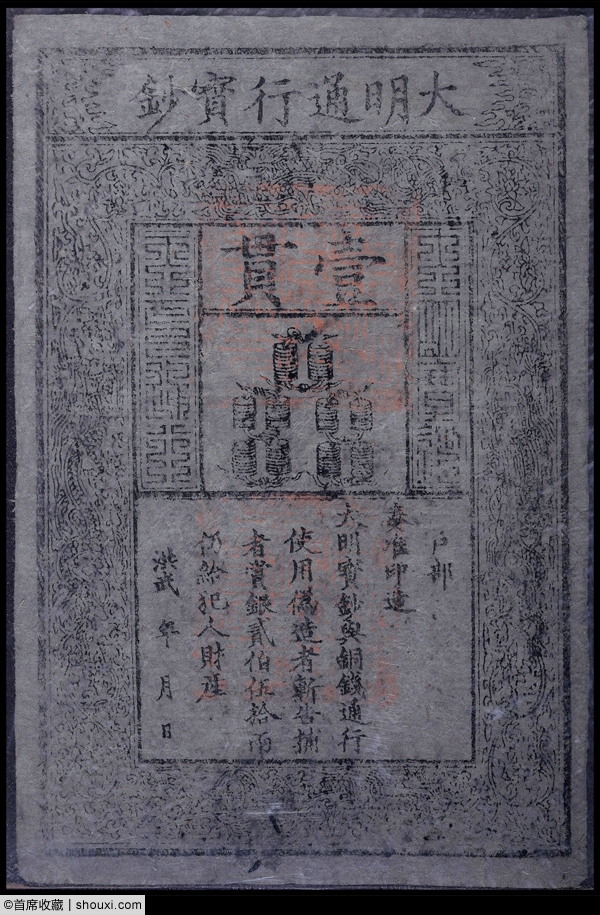 大明通行寶鈔
壹貫
大明寶鈔
天下通行
戶部
奏准印造
大明寶鈔與銅錢通行
使用偽造者斬告捕
者賞銀貳伯伍拾兩
仍給犯人財產
洪武 年 月 日
©首席收藏 | shouxi.com